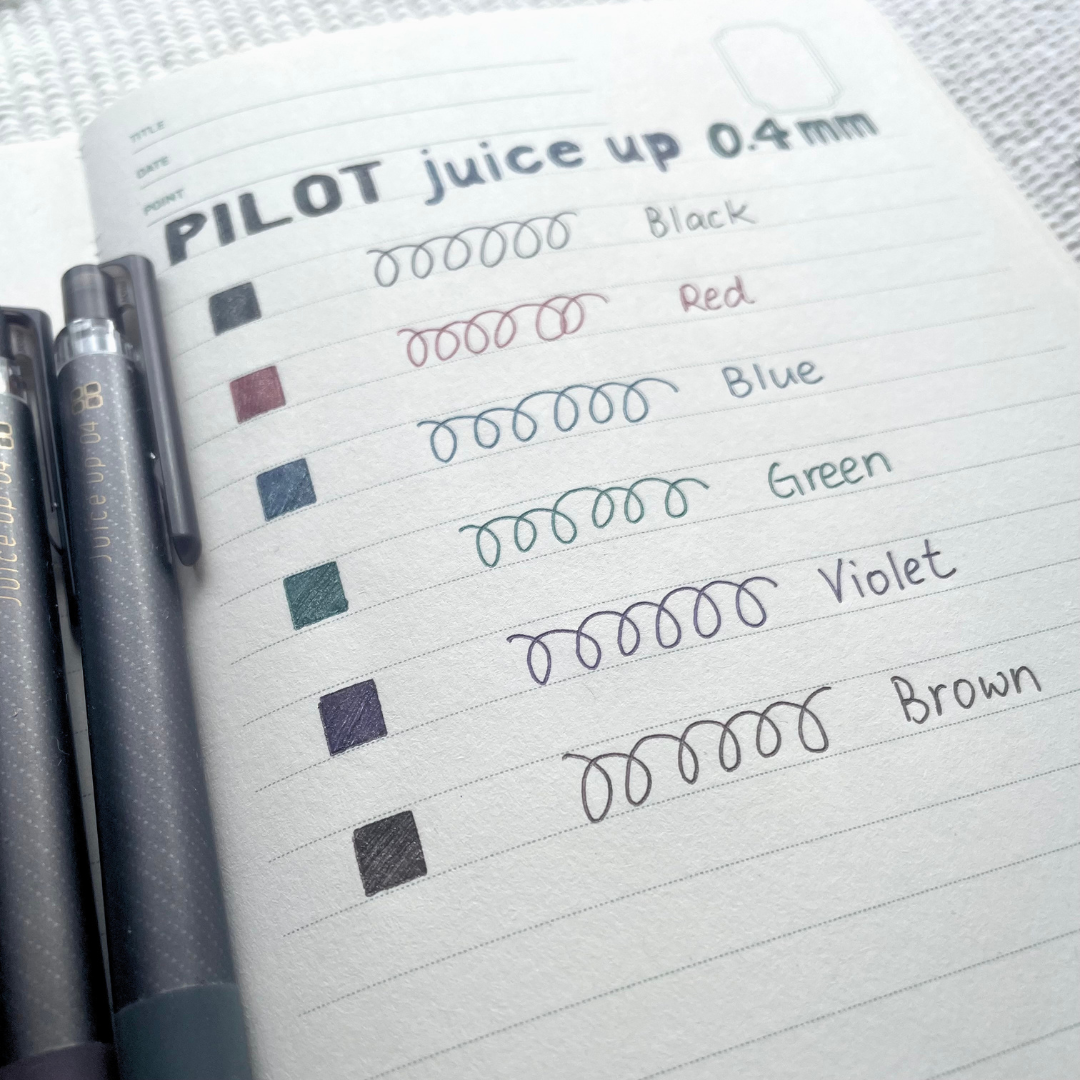 TITLE
DATE
POINT
PILOT juice up 0.4mm
Black
Red
Blue
Green
Violet
Brown
Juice up 04
Juice up 04